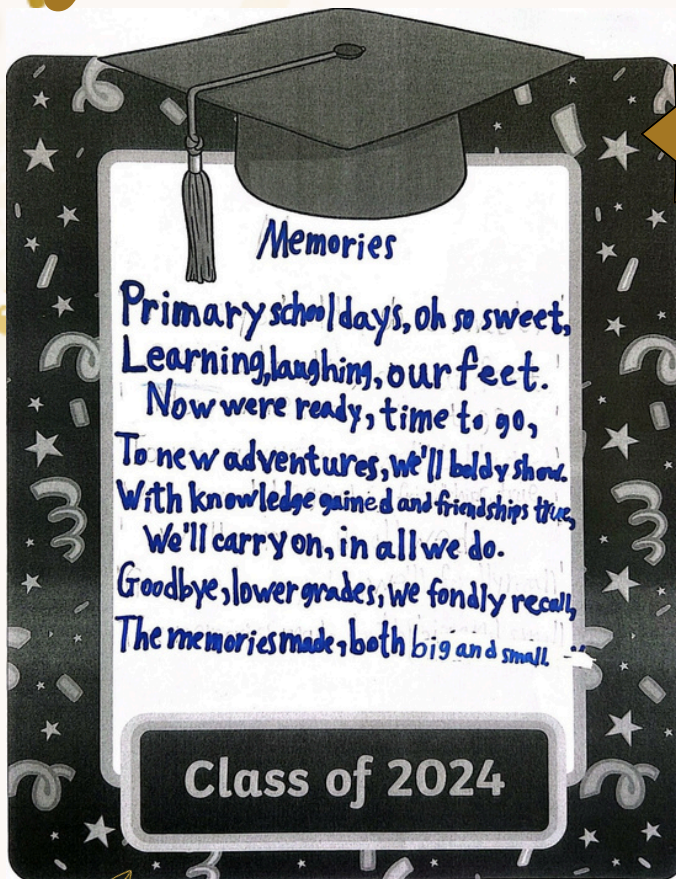 Memories
Primary school days, oh so sweet,
Learning, laughing, our feet.
Now were ready, time to go,
To new adventures, we'll boldy show.
With knowledge gained and friendships true,
We'll carry on, in all we do.
Goodbye, lower grades, we fondly recall,
The memories made, both big and small.
Class of 2024